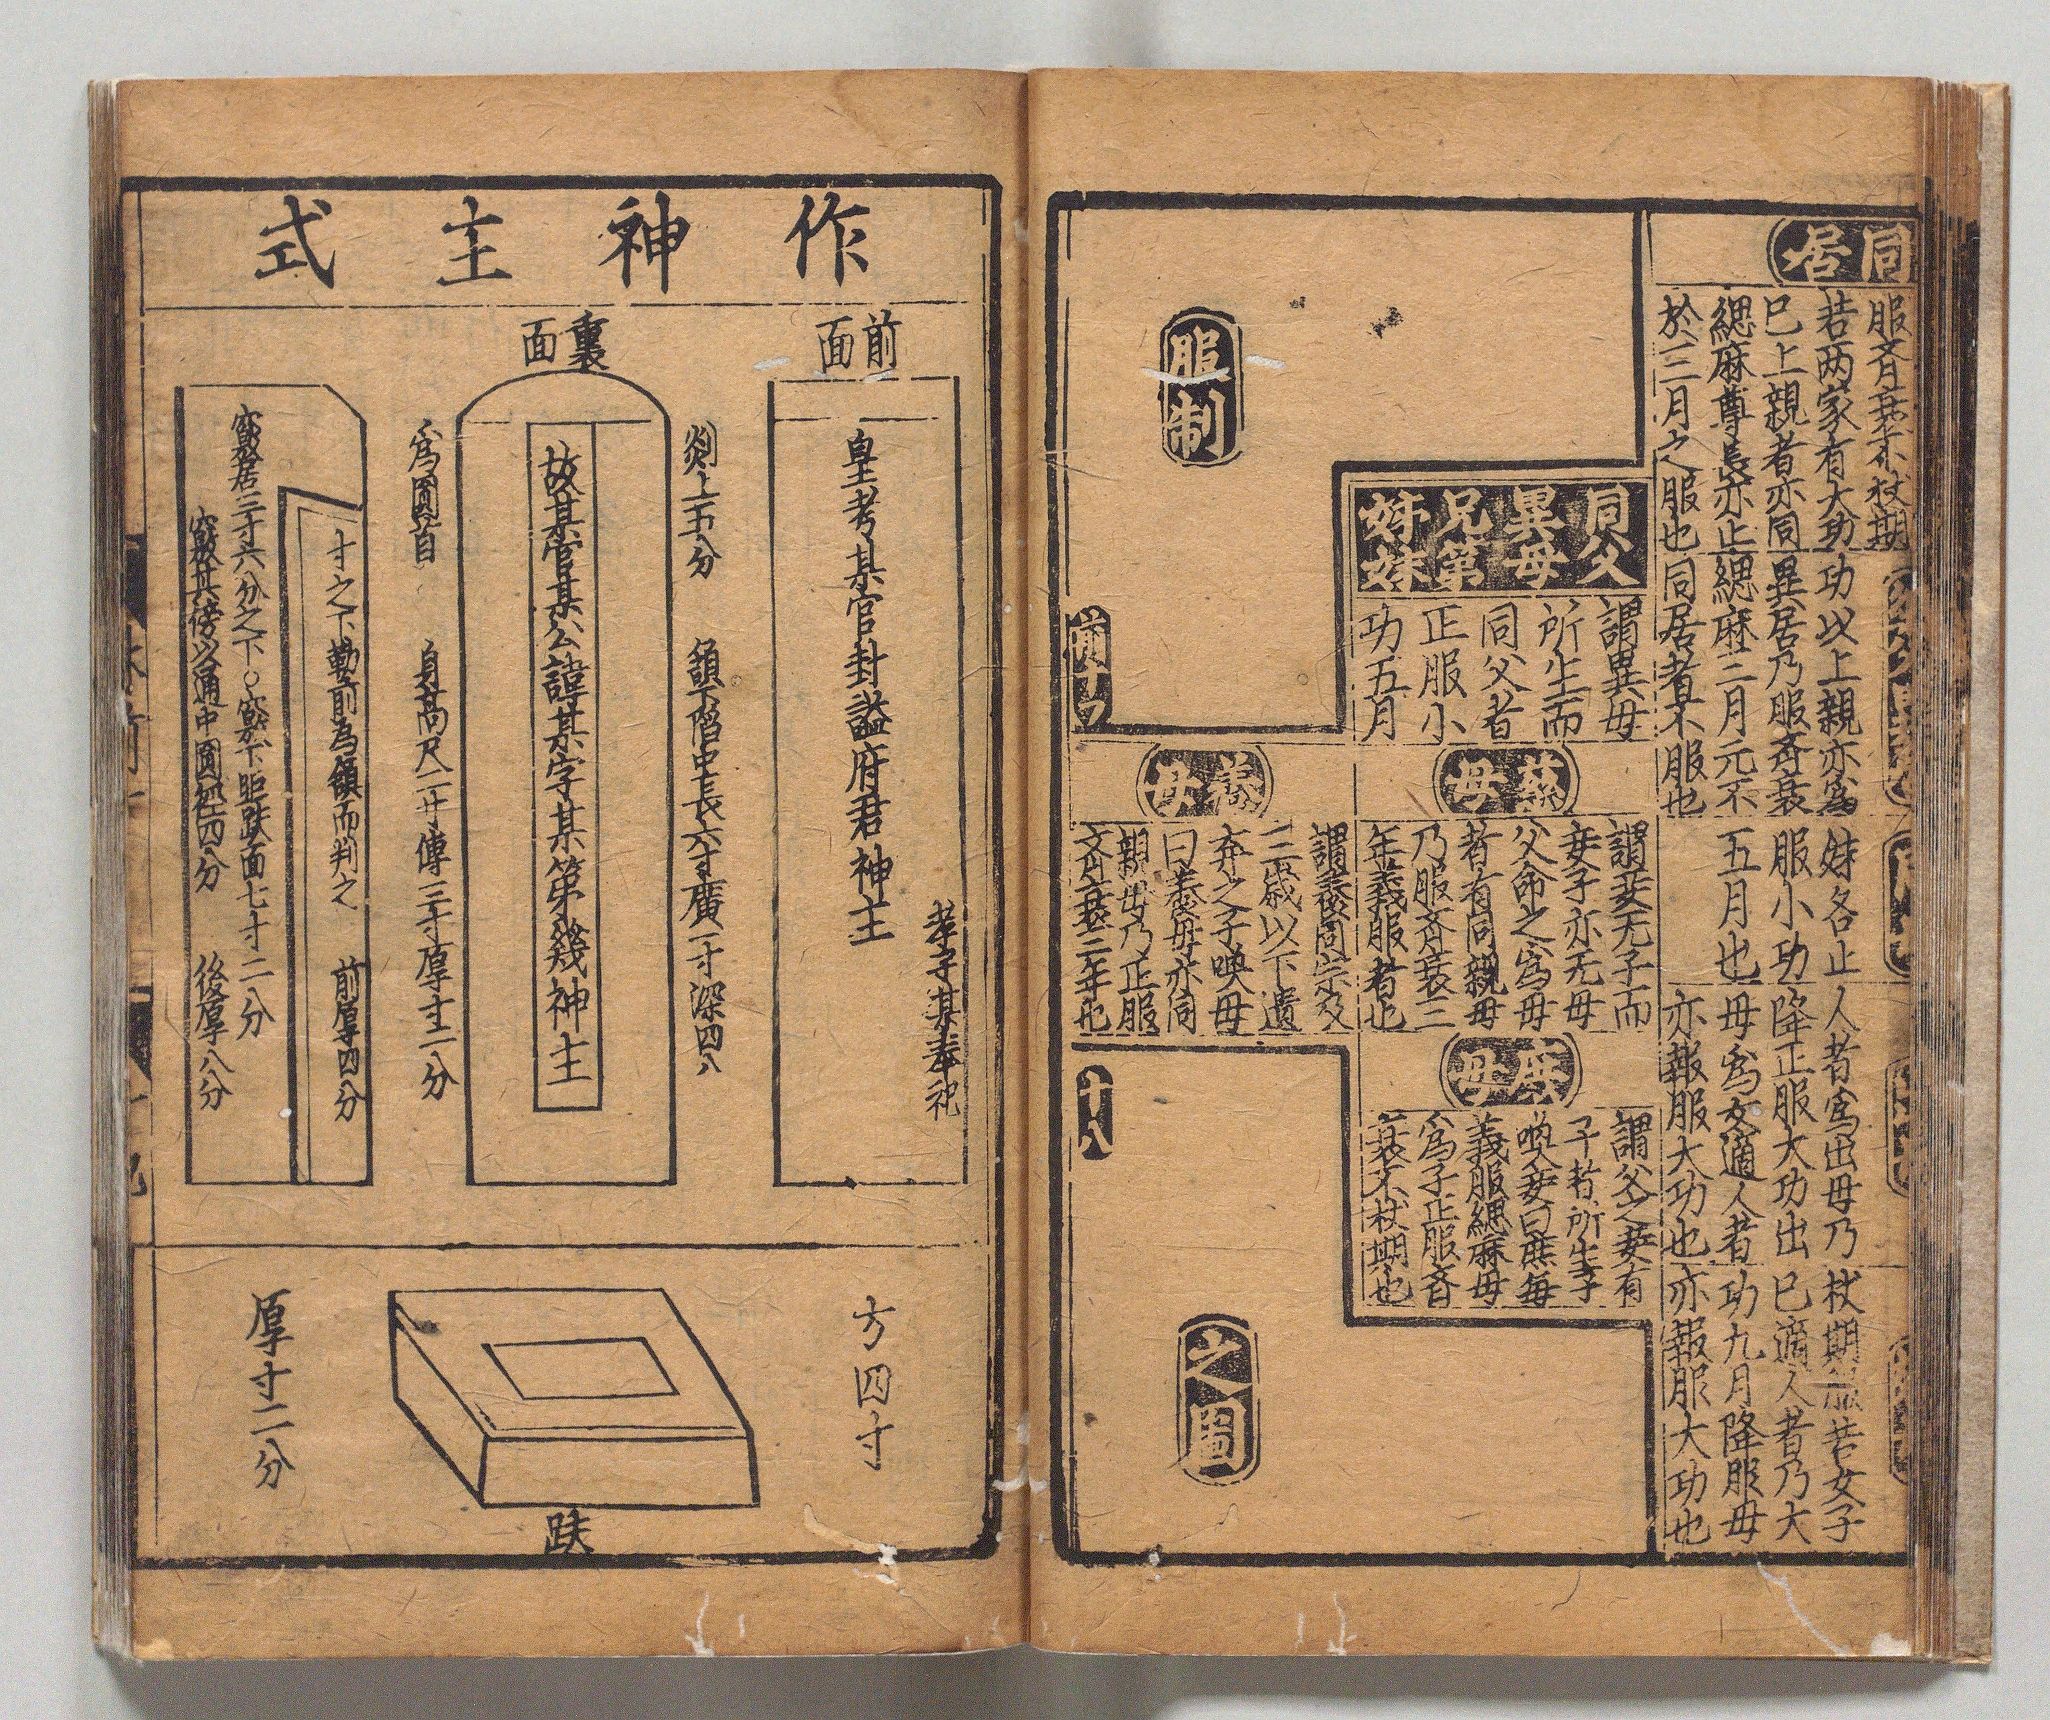 同居
服齊衰不杖期
若两家有大功
已上親者亦同
緦麻尊長亦止
於三月之服也
功以上親亦爲
異居乃服齊衰
緦麻三月元不
同居者不服也
妹各止
服小功
五月也
人者爲出母乃
降正服大功出
母爲女適人者
亦報服大功也
杖期服若女子
已適人者乃大
功九月降服母
亦報服大功也
服制
同父
異母
兄弟
姊妹
謂異母
所生而
同父者
正服小
功五月
慈母
謂妾无子而
妾子亦无母
父命之爲母
者有同親母
乃服齊衰三
年義服者也
養母
謂養同宗及
三歲以下遺
弃之子喚母
曰養母亦同
親母乃正服
齊衰三年也
庶母
謂父之妾有
子者所生子
喚妾曰庶母
義服緦麻母
爲子正服齊
衰不杖期也
十八
之圖
作神主式
前面
皇考某官封謚府君神主
孝子某奉祀
剡上五分
頷下陷中長六寸廣一寸深四分
裏面
故某官某公諱某字某第幾神主
爲圓首
身高尺二寸博三寸厚寸二分
寸之下勒前為頷而判之
前厚四分
竅居三寸六分之下○竅下距趺面七寸二分
竅其傍以通中圓徑四分
後厚八分
方四寸
厚寸二分
趺